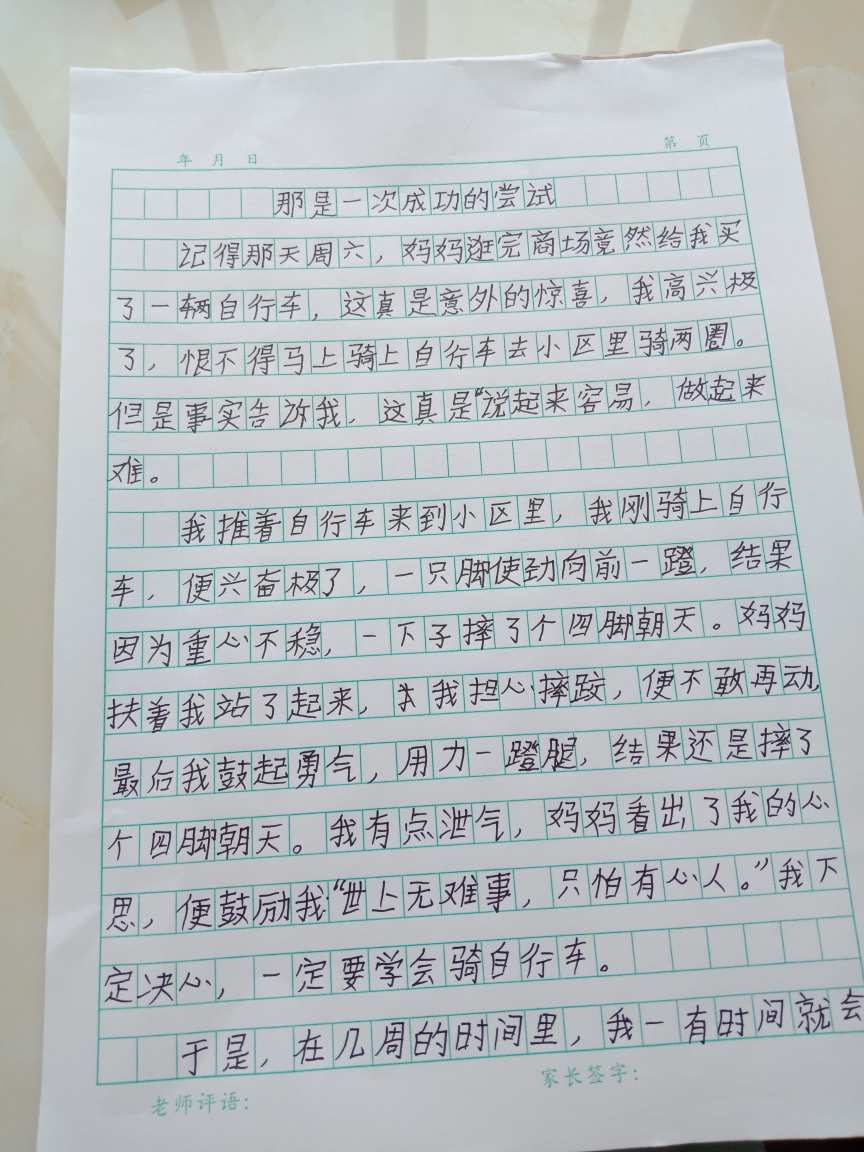 年 月 日 第 页
那是一次成功的尝试
记得那天周六，妈妈逛完商场竟然给我买
了一辆自行车，这真是意外的惊喜，我高兴极
了，恨不得马上骑上自行车去小区里骑两圈。
但是事实告诉我，这真是“说起来容易，做起来
难。
我推着自行车来到小区里，我刚骑上自行
车，便兴奋极了，一只脚使劲向前一蹬，结果
因为重心不稳，一下子摔了个四脚朝天。妈妈
扶着我站了起来，我担心摔跤，便不敢再动，
最后我鼓起勇气，用力一蹬腿，结果还是摔了
个四脚朝天。我有点泄气，妈妈看出了我的心
思，便鼓励我“世上无难事，只怕有心人。”我下
定决心，一定要学会骑自行车。
于是，在几周的时间里，我一有时间就会
老师评语： 家长签字：